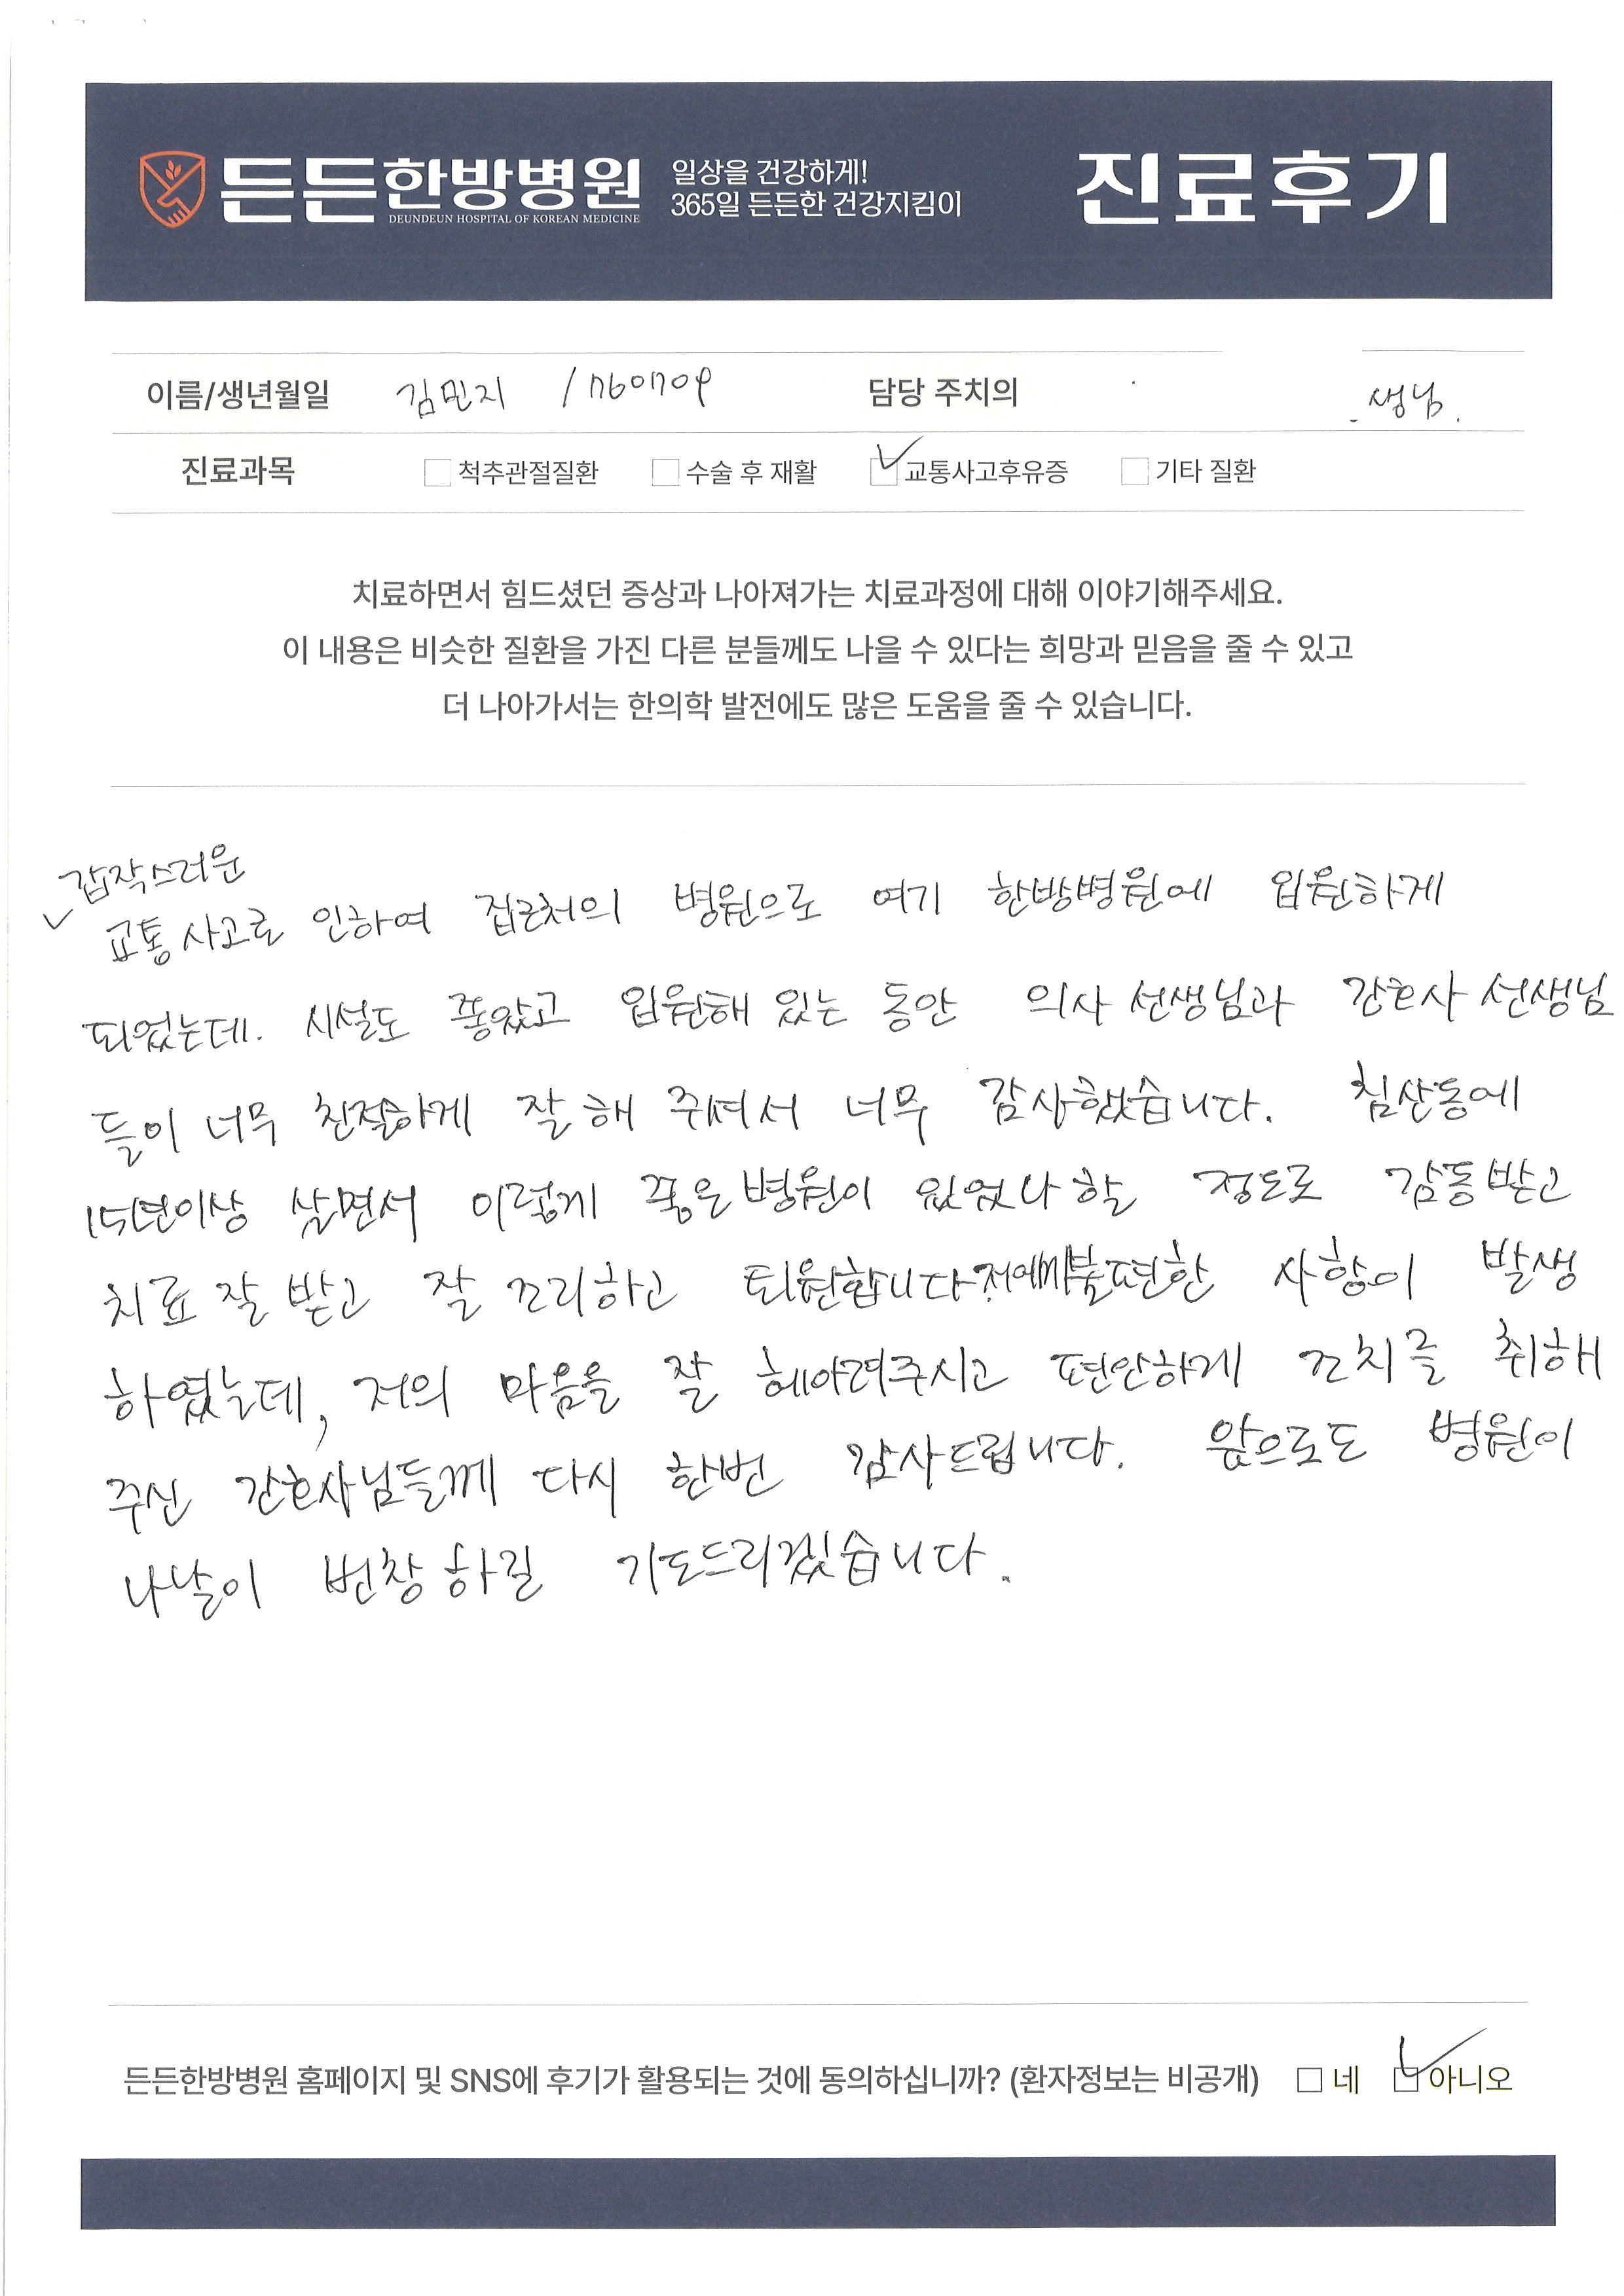 든든한방병원
DEUNDEUN HOSPITAL OF KOREAN MEDICINE
일상을 건강하게!
365일 든든한 건강지킴이
진료후기
이름/생년월일 김민지 / 760709 담당 주치의 생님.
진료과목 척추관절질환 수술 후 재활 교통사고후유증 기타 질환
치료하면서 힘드셨던 증상과 나아져가는 치료과정에 대해 이야기해주세요.
이 내용은 비슷한 질환을 가진 다른 분들께도 나을 수 있다는 희망과 믿음을 줄 수 있고
더 나아가서는 한의학 발전에도 많은 도움을 줄 수 있습니다.
갑작스러운
교통사고로 인하여 집근처의 병원으로 여기 한방병원에 입원하게
되었는데. 시설도 좋았고 입원해 있는 동안 의사 선생님과 간호사 선생님
들이 너무 친절하게 잘 해 주셔서 너무 감사했습니다. 침산동에
15년이상 살면서 이렇게 좋은 병원이 있었나 할 정도로 감동받고
치료 잘 받고 잘 조리하고 퇴원합니다. 불편한 사항이 발생
하였는데, 저의 마음을 잘 헤아려주시고 편안하게 조치를 취해
주신 간호사님들께 다시 한번 감사드립니다. 앞으로도 병원이
나날이 번창하길 기도드리겠습니다.
든든한방병원 홈페이지 및 SNS에 후기가 활용되는 것에 동의하십니까? (환자정보는 비공개) 네 아니오